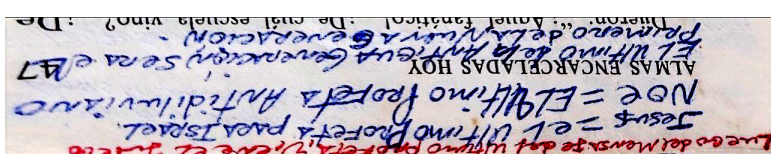 Luego del Mensaje del Ultimo Profeta, Viene el Juicio
Jesus = el Ultimo Profeta para Israel.
NOE = EL Ultimo Profeta Antidiluviano
ALMAS ENCARCELADAS HOY 47
EL Ultimo de la Antigua Generación, Sera el
Primero de la Nueva Generacion.
fanático! ¿De cuál escuela vino? ¿De